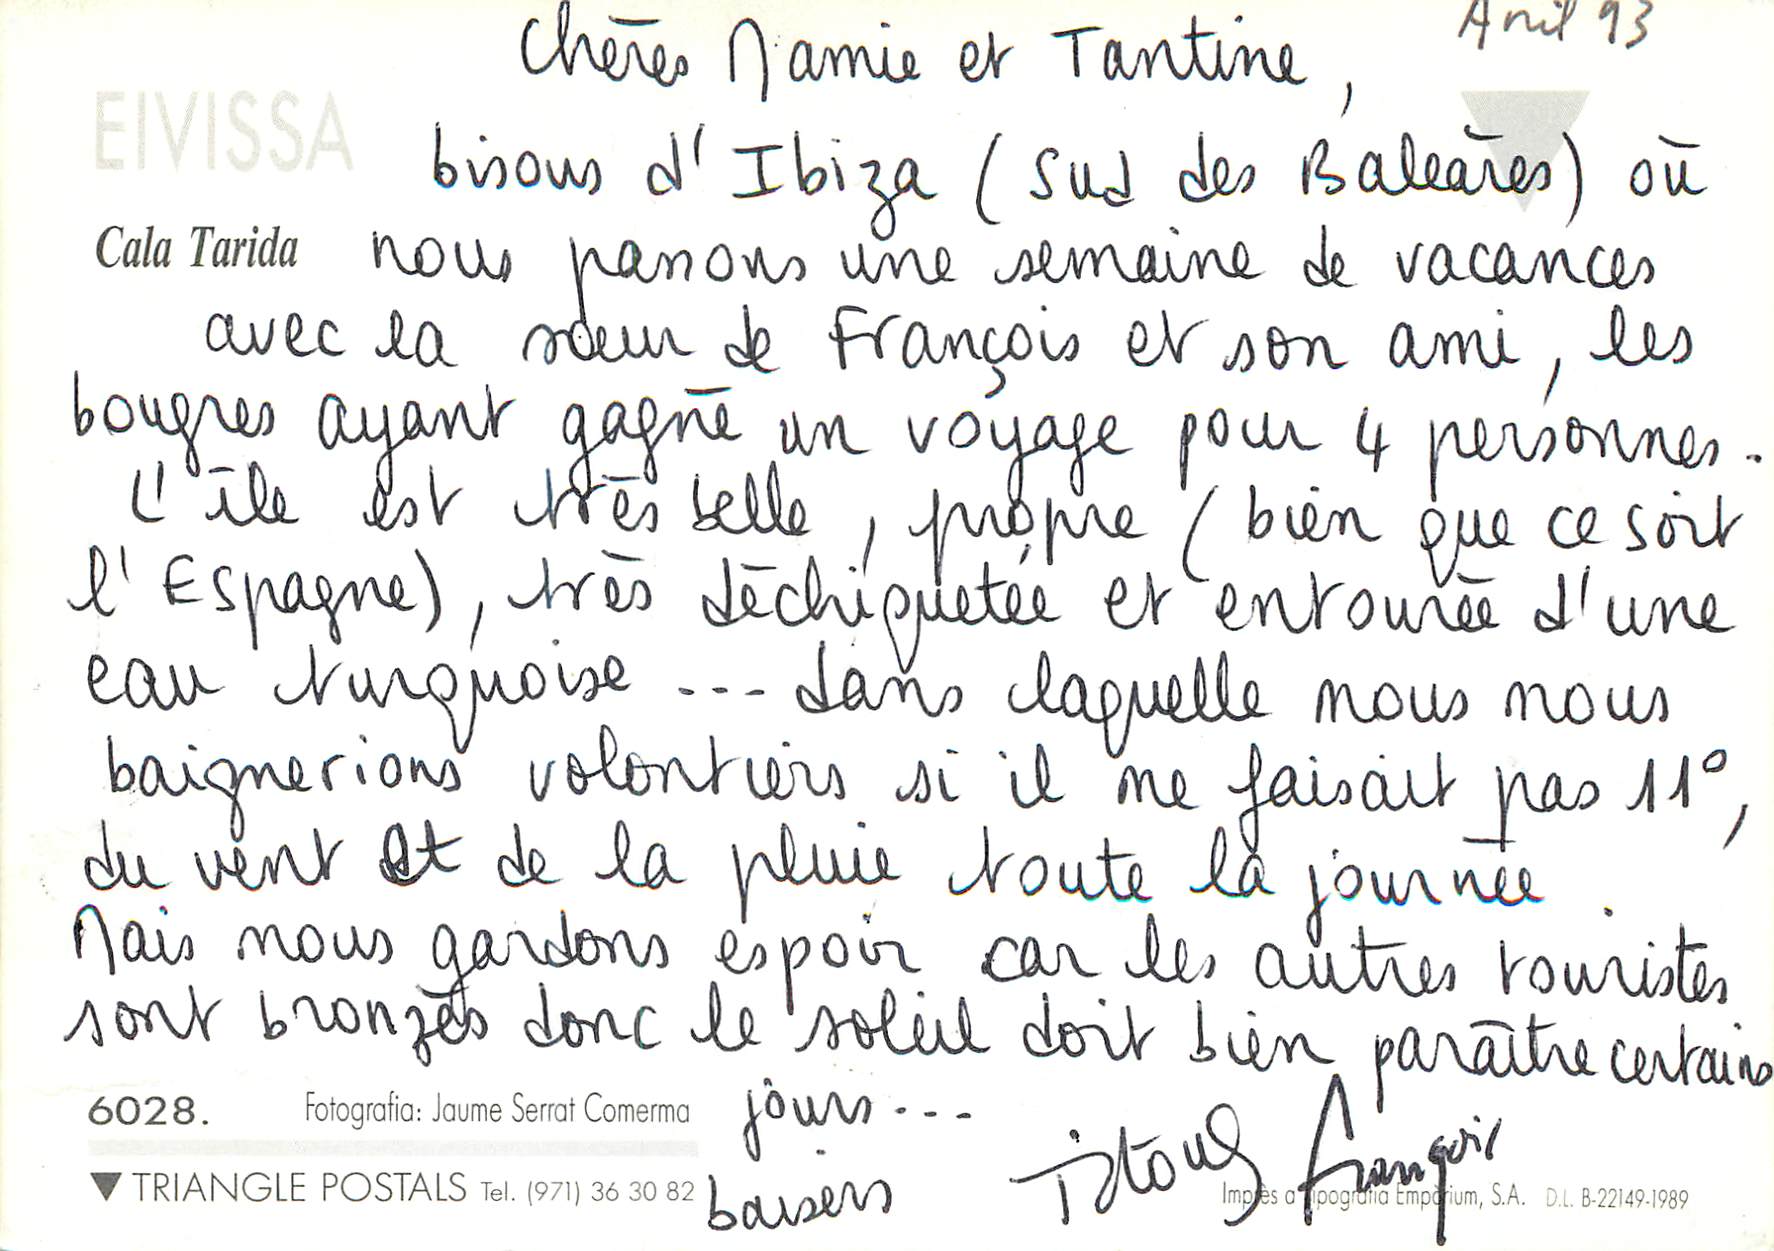 Avril 93
Chères Mamie et Tantine,
EIVISSA
bisous d'Ibiza (sud des Baléares) où
Cala Tarida
nous passons une semaine de vacances
avec la sœur de François et son ami, les
bougres ayant gagné un voyage pour 4 personnes.
L'île est très belle, propre (bien que ce soit
l'Espagne), très déchiquetée et entourée d'une
eau turquoise --- dans laquelle nous nous
baignerions volontiers si il ne faisait pas 11°,
du vent et de la pluie toute la journée.
Mais nous gardons espoir car les autres touristes
sont bronzés donc le soleil doit bien paraître certains
jours ---
6028.
Fotografia: Jaume Serrat Comerma
▼ TRIANGLE POSTALS Tel. (971) 36 30 82
baisers
François
Imprès a Tipografia Empòrium, S.A. D.L. B-22149-1989